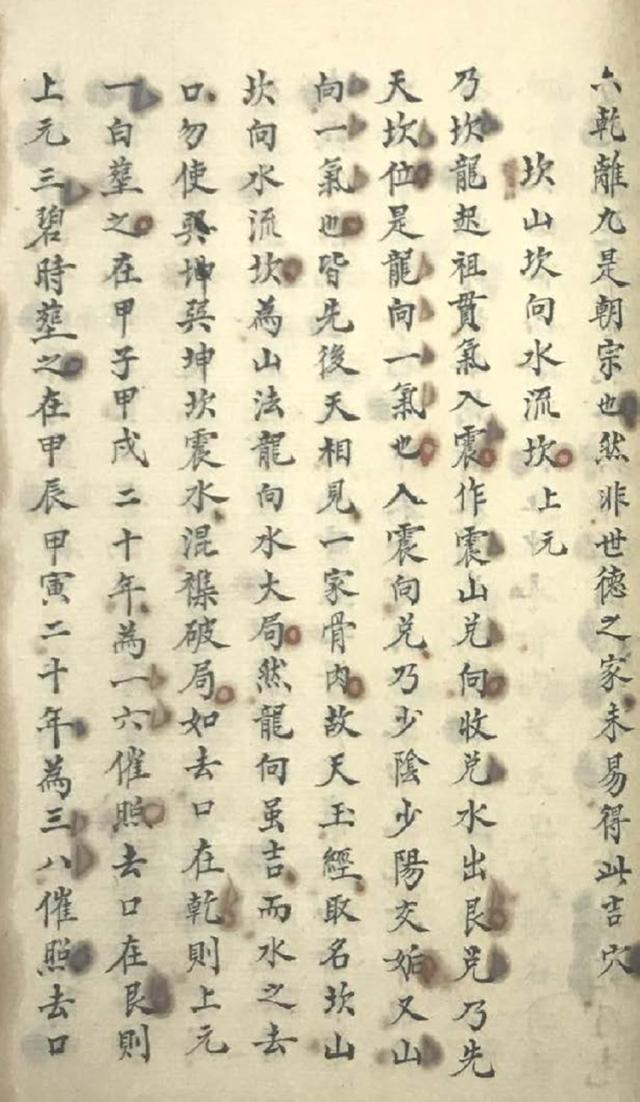 六乾離九是朝宗也然非世德之家未易得此吉穴
坎山坎向水流坎上元
乃坎龍起祖貫氣入震作震山兑向收兑水出艮兑乃先
天坎位是龍向一氣也入震向兑乃少陰少陽交姤又山
向一氣也皆先後天相見一家骨肉故天玉經取名坎山
坎向水流坎為山法龍向水大局然龍向虽吉而水之去
口勿使巽坤巽坤坎震水混襍破局如去口在乾則上元
一白塟之在甲子甲戌二十年為一六催照去口在艮則
上元三碧時塟之在甲辰甲寅二十年為三八催照去口